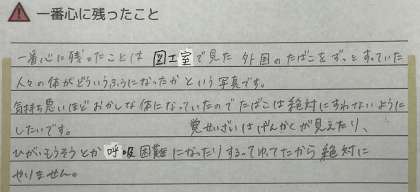 一番心に残ったこと
一番心に残ったことは 図工室で見た 外国のたばこをずっとすっていた
人々の体がどういうふうになったかという写真です。
気持ち悪いほどおかしな体になっていたのでたばこは絶対にすわないように
したいです。 覚せいざいはげんかくが見えたり、
ひがいもうそうとか呼吸困難になったりするってゆってたから絶対に
やりません。